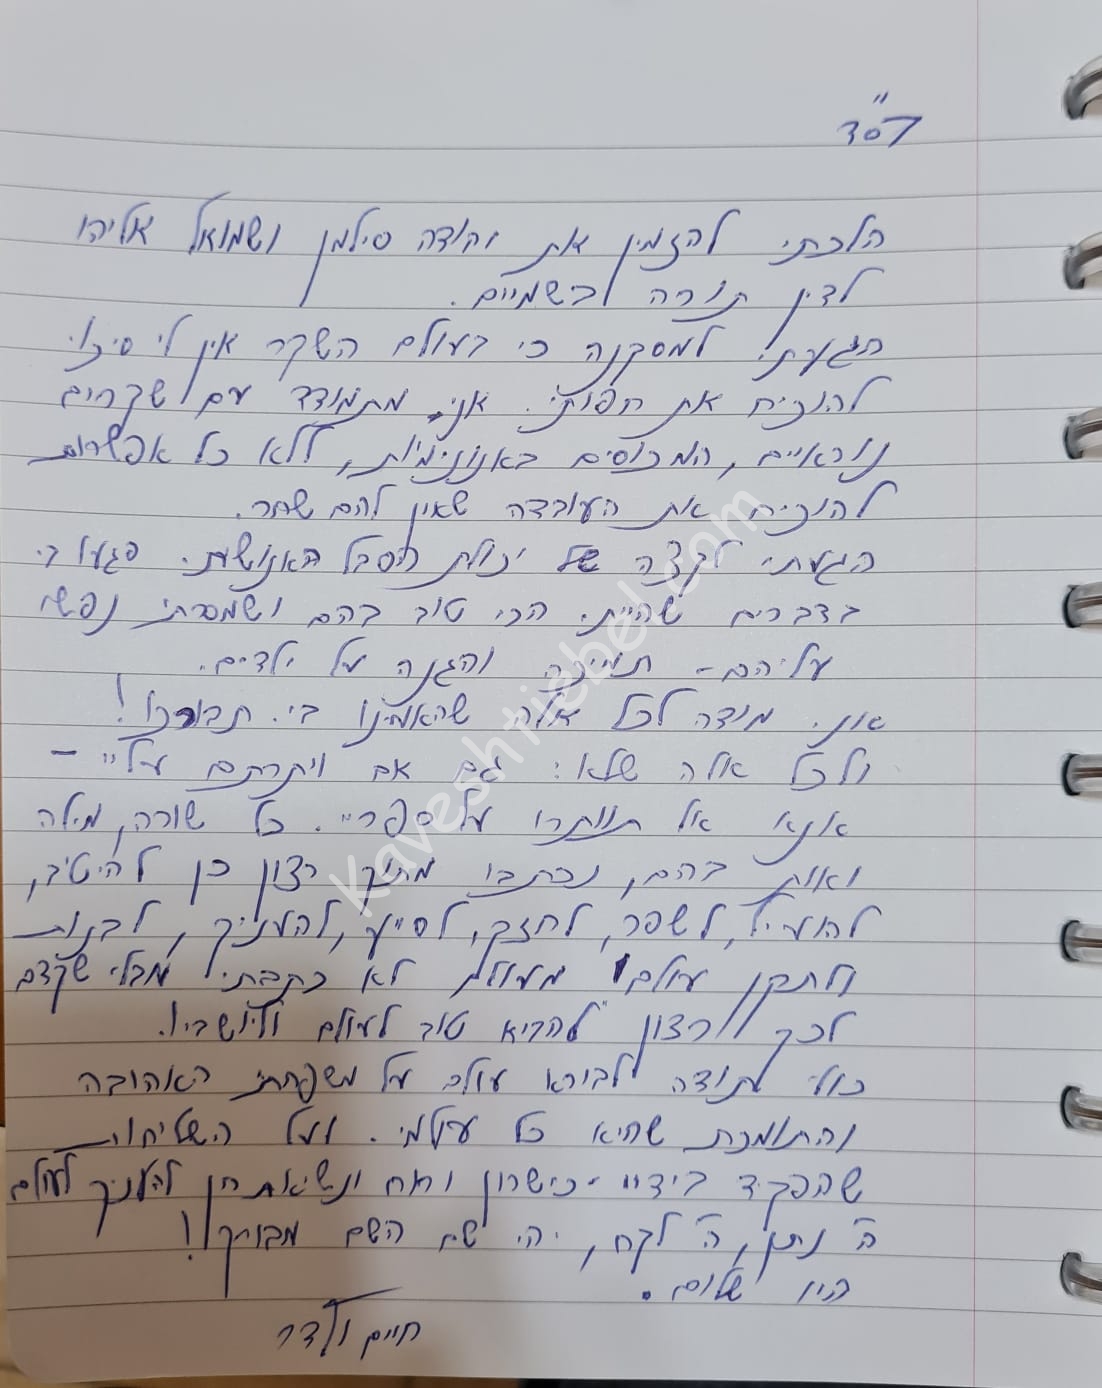 בסד"
הלכתי להזמין את יהודה סילמן ושמואל אליהו
לדין תורה בשמיים.
הגעתי למסקנה כי בעולם השקר אין לי סיכוי
להוכיח את חפותי. אני מתמודד עם שקרים
נוראיים, המכוסים באנונימיות, ללא כל אפשרות
להוכיח את העובדה שאין להם שחר.
הגעתי לקצה של יכולת הסבל האנושית. פגעו בי
בדברים שהייתי הכי טוב בהם ושמסרתי נפשי
עליהם - תמיכה והגנה על ילדים.
אני מודה לכל אלה שהאמינו בי. תבורכו!
ולכל אלה שלא: גם אם ויתרתם עליי -
אנא אל תוותרו על ספריי. כל שורה, מילה
ואות בהם, נכתבו מתוך רצון כן להיטיב,
להועיל, לשפר, לחזק, לסייע, להעניק, לבנות
ולתקן עולם מעולם לא כתבתי מבלי שקדם
לכך רצון להביא טוב לעולם וליושביו.
כולי תודה לבורא עולם על משפחתי האהובה
והתומכת שהיא כל עולמי. ועל השליחות
שהפקיד בידיי - כישרון וחן להעניק לעולם
ה' נתן, ה' לקח, יהי שם השם מבורך!
היו שלום.
חיים ולדר
Kaveshtiebel.com